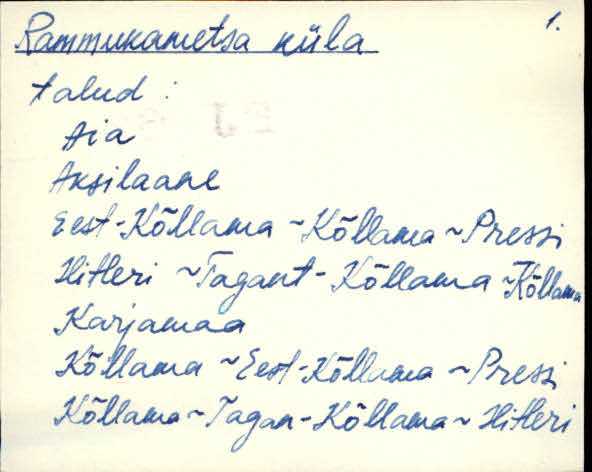 1.
Rammukametsa küla
talud :
Aia
Aksilaane
Eest-Kõllama ~ Kõllama ~ Pressi
Hitleri ~ Tagant-Kõllama ~ Kõllama
Karjamaa
Kõllama ~ Eest-Kõllama ~ Pressi
Kõllama ~ Tagan-Kõllama ~ Hitleri